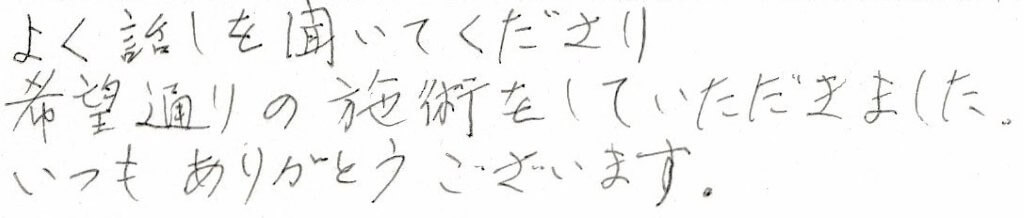 よく話しを聞いてくださり
希望通りの施術をしていただきました。
いつもありがとうございます。